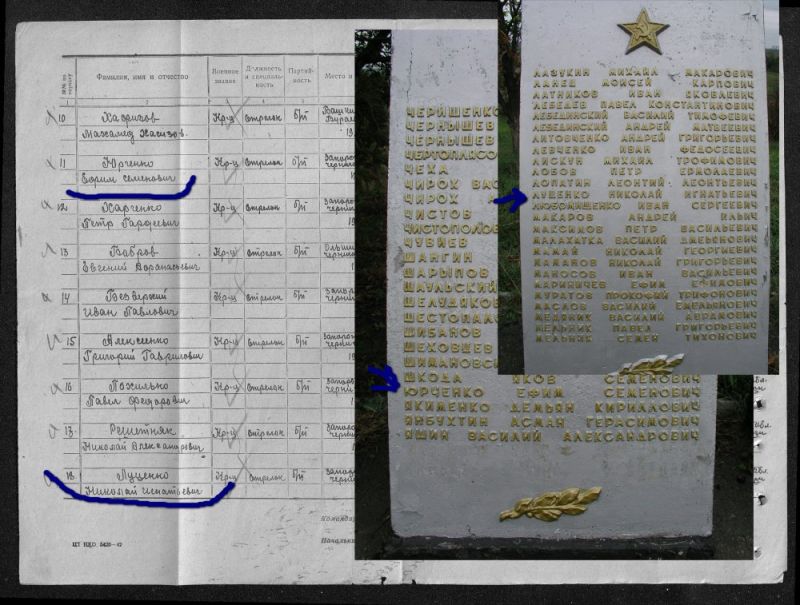 №№ по порядку
Фамилия, имя и отчество
Военное звание
Должность и специаль-ность
Партий-ность
Место и
10 Кр-ц Стрелок б/п
11 Юрченко Кр-ц Стрелок б/п Запорож
Ефим Семенович
12 Харченко Кр-ц Стрелок б/п Запорож
Петр Гордеевич
13 Бобров Кр-ц Стрелок б/п
Евгений Афанасьевич
14 Безверхий Кр-ц Стрелок б/п
Иван Павлович
15 Алексеенко Кр-ц Стрелок б/п
Григорий Гаврилович
16 Кр-ц Стрелок б/п
Павел Федорович
17 Решетняк Кр-ц Стрелок б/п
Николай Александрович
18 Луценко Кр-ц Стрелок б/п
Николай Игнатьевич
Начальни
ЦТ НКО 5420—42
ЧЕРИШЕНКО
ЧЕРНЫШЕВ
ЧЕРНЫШЕВ
ЧЕРТОПЛЯСО
ЧЕХА
ЧИРОХ ВАС
ЧИРОХ
ЧИСТОВ
ЧИСТОПОЛОВ
ЧУВИЕВ
ШАНГИН
ШАРЫПОВ
ШАУЛЬСКИЙ
ШЕЛУДЯКОВ
ШЕСТОПАЛО
ШИБАНОВ
ШЕХОВЦЕВ
ШИМАНОВСК
ШКОДА ЯКОВ СЕМЕНОВИЧ
ЮРЧЕНКО ЕФИМ СЕМЕНОВИЧ
ЯКИМЕНКО ДЕМЬЯН КИРИЛЛОВИЧ
ЯНБУХТИН АСМАН ГЕРАСИМОВИЧ
ЯШИН ВАСИЛИЙ АЛЕКСАНДРОВИЧ
ЛАЗУКИН МИХАИЛ МАКАРОВИЧ
ЛАНЕЦ МОИСЕЙ КАРПОВИЧ
ЛАТНИКОВ ИВАН ЯКОВЛЕВИЧ
ЛЕБЕДЕВ ПАВЕЛ КОНСТАНТИНОВИЧ
ЛЕБЕДИНСКИЙ ВАСИЛИЙ ТИМОФЕЕВИЧ
ЛЕБЕДИНСКИЙ АНДРЕЙ МАТВЕЕВИЧ
ЛИТОВЧЕНКО АНДРЕЙ ГРИГОРЬЕВИЧ
ЛЕВЧЕНКО ИВАН ФЕДОСЕЕВИЧ
ЛИСКУН МИХАИЛ ТРОФИМОВИЧ
ЛОБОВ ПЕТР ЕРМОЛАЕВИЧ
ЛОПАТИН ЛЕОНТИЙ ЛЕОНТЬЕВИЧ
ЛУЦЕНКО НИКОЛАЙ ИГНАТЬЕВИЧ
ЛЮБОМИЩЕНКО ИВАН СЕРГЕЕВИЧ
МАКАРОВ АНДРЕЙ ИЛЬИЧ
МАКСИМОВ ПЕТР ВАСИЛЬЕВИЧ
МАЛАХАТКА ВАСИЛИЙ ДЕМЬЯНОВИЧ
МАМАЙ НИКОЛАЙ ГЕОРГИЕВИЧ
МАМАНОВ НИКОЛАЙ ГРИГОРЬЕВИЧ
МАНОСОВ ИВАН ВАСИЛЬЕВИЧ
МАРИНИЧЕВ ЕФИМ ЕФИМОВИЧ
МУРАТОВ ПРОКОФИЙ ТРИФОНОВИЧ
МАСЛОВ ВАСИЛИЙ ЕМЕЛЬЯНОВИЧ
МЕДЯНИК ВАСИЛИЙ АВРАМОВИЧ
МЕЛЬНИК ПАВЕЛ ГРИГОРЬЕВИЧ
МЕЛЬНИК СЕМЕН ТИХОНОВИЧ